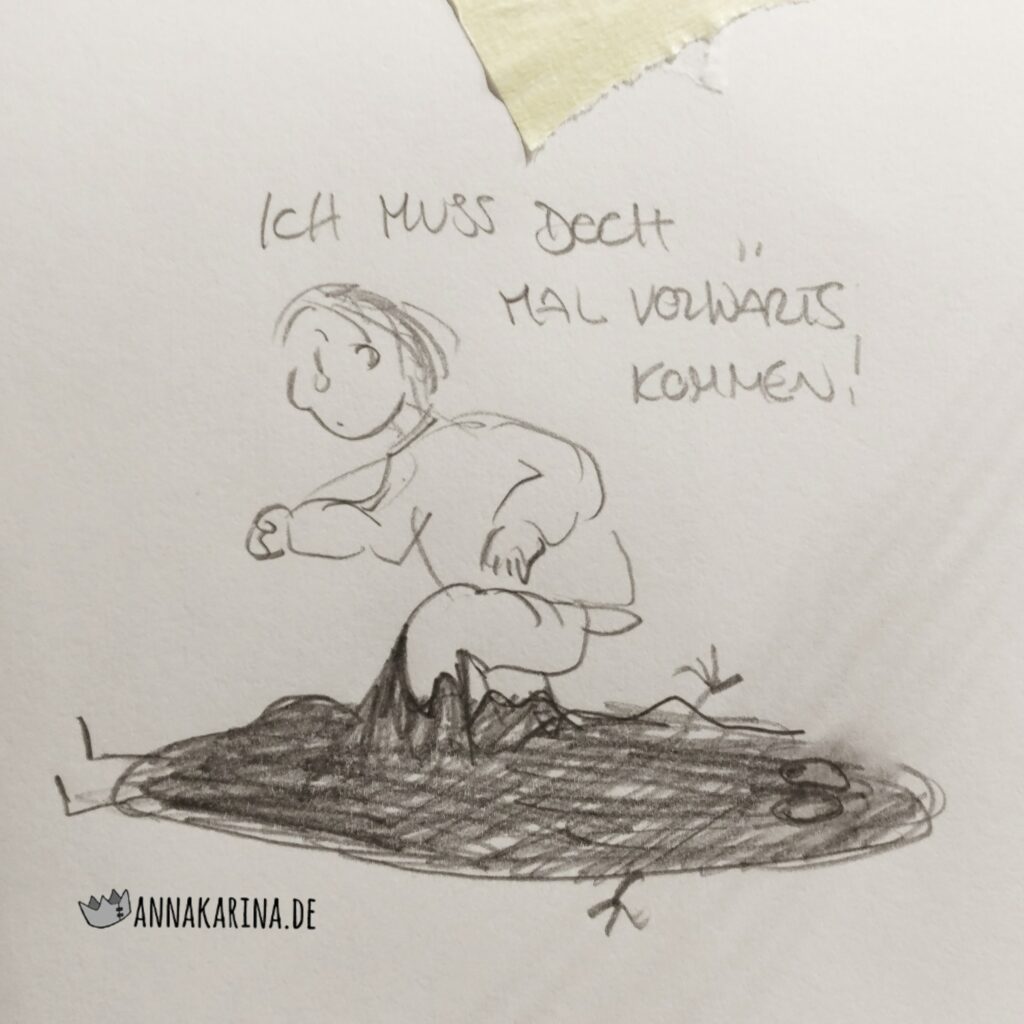 ICH MUSS DOCH
MAL VORWÄRTS
KOMMEN!
ANNAKARINA.DE